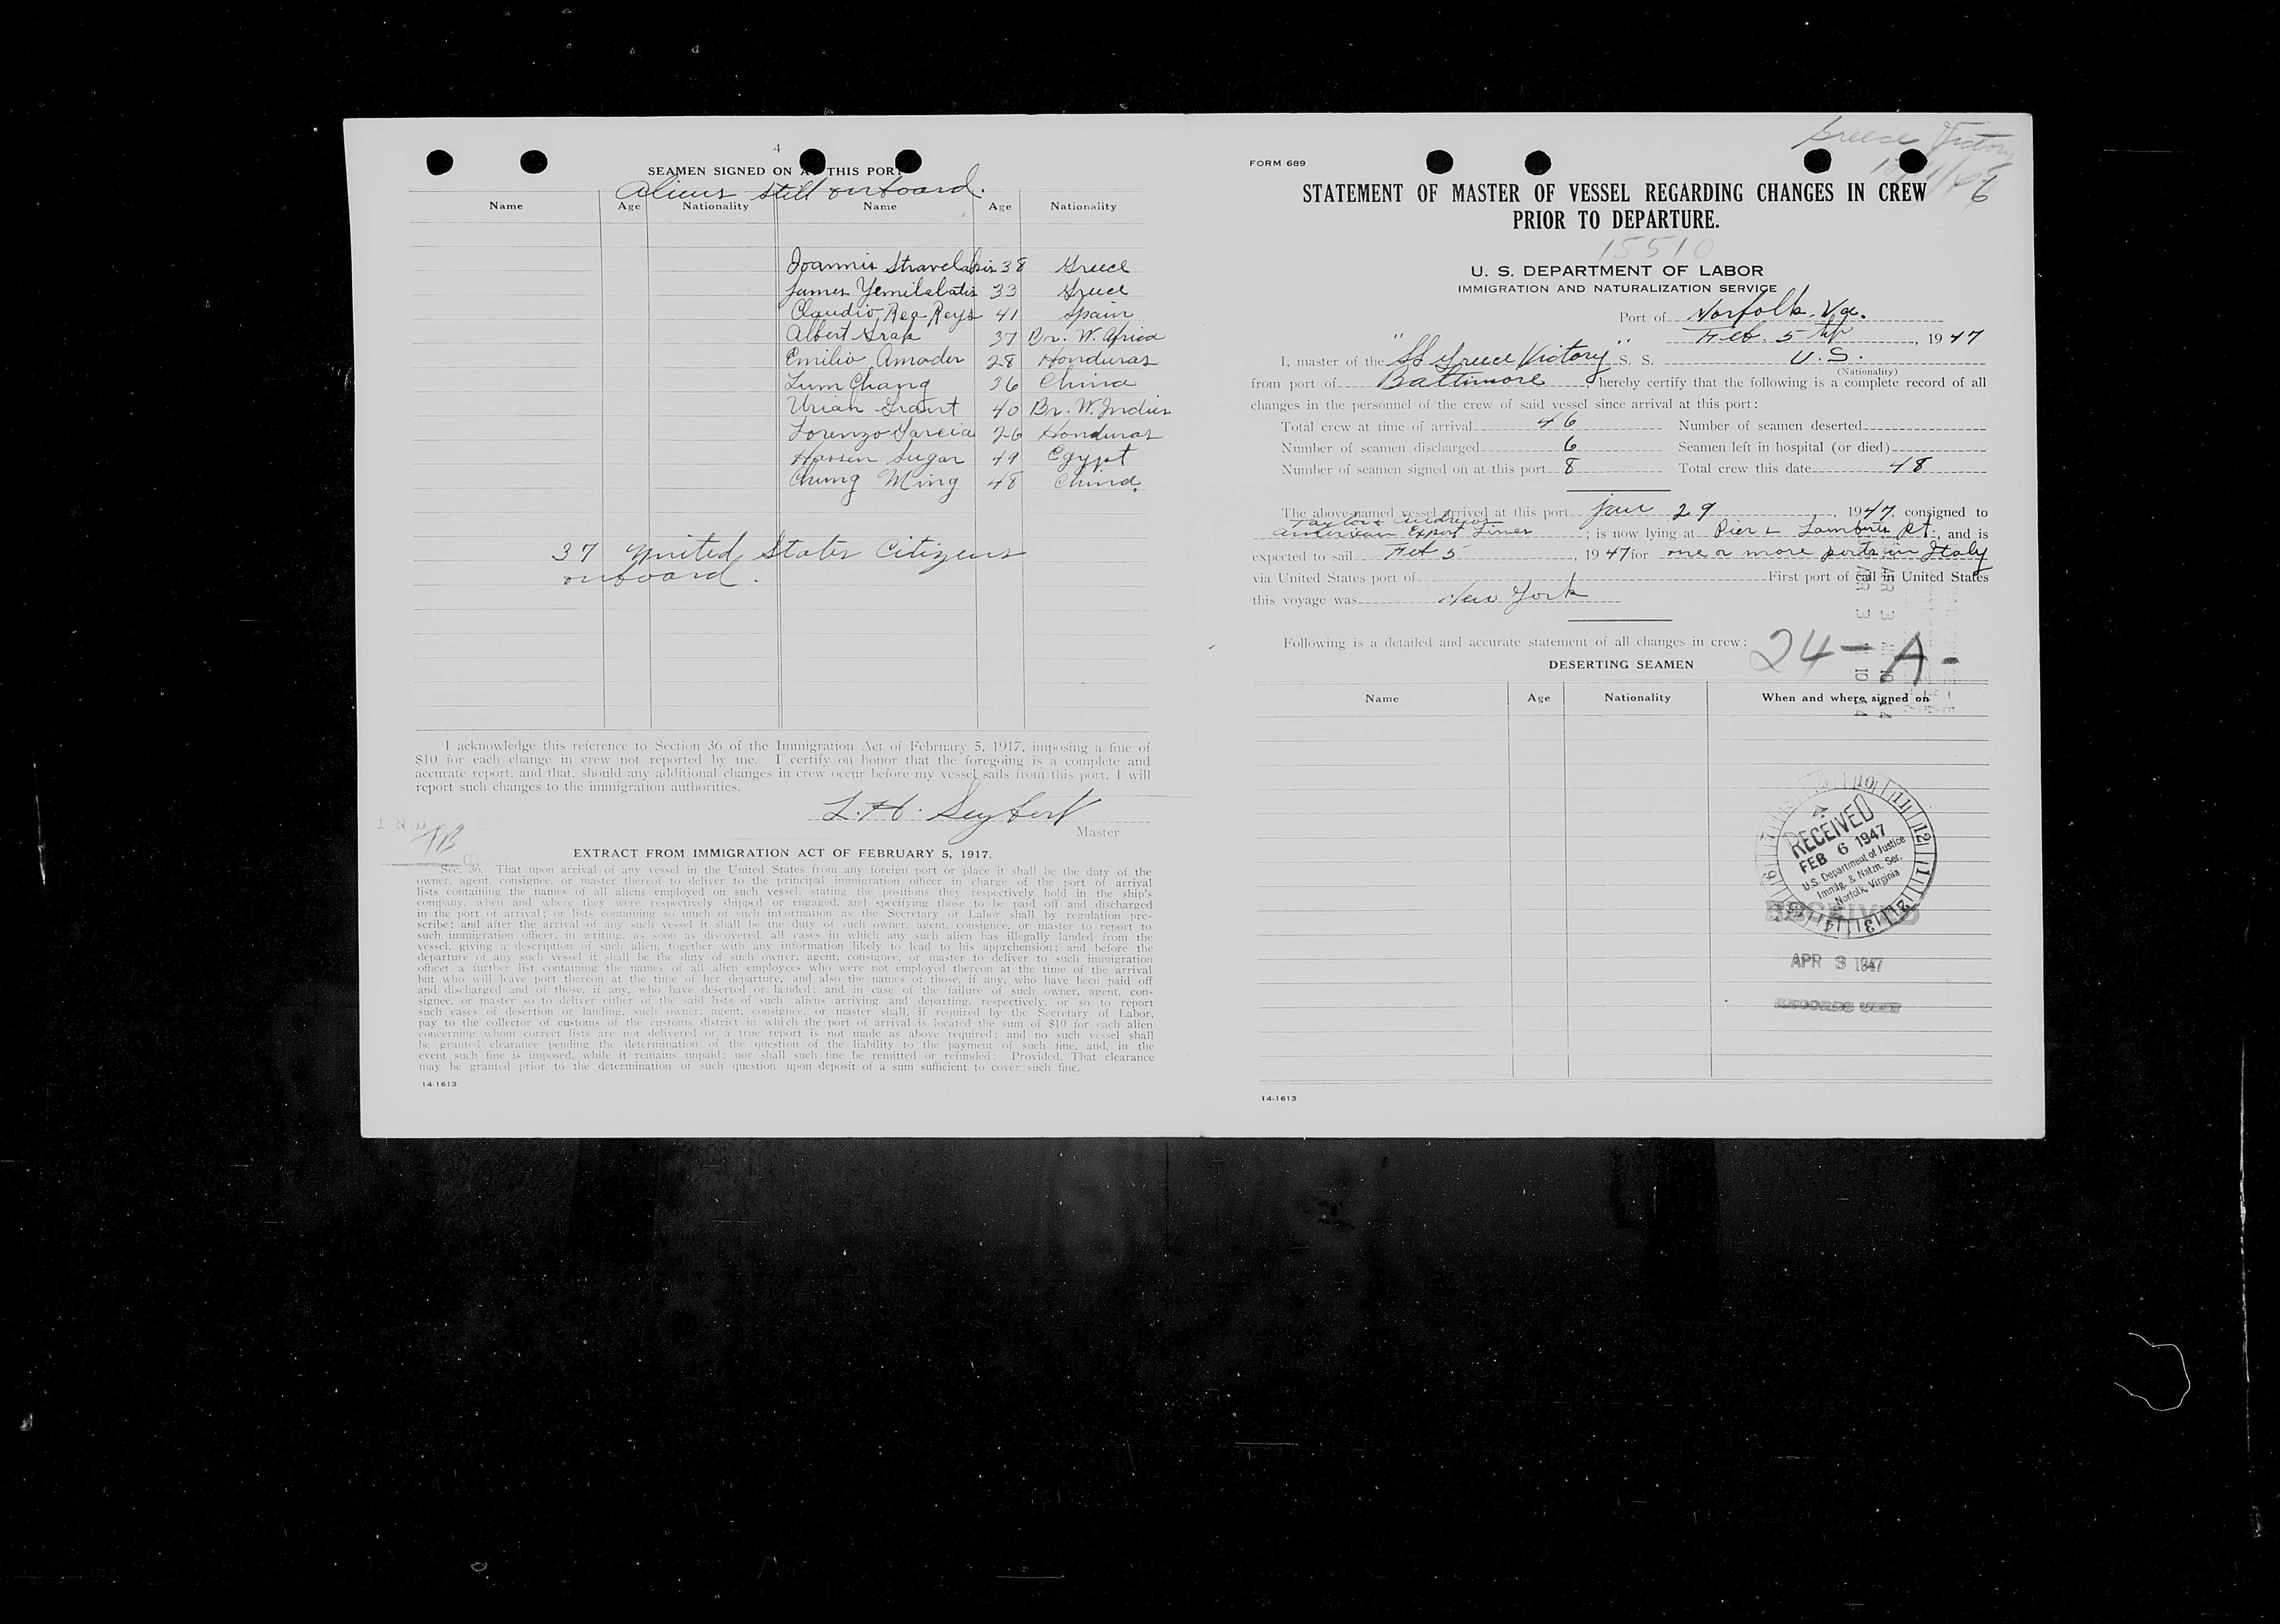 4
SEAMEN SIGNED ON A THIS PORT
Aliens still onboard.
Name Age Nationality Name Age Nationality
Joannis Stravelakis 38 Greece
James Yemilalatis 33 Greece
Claudio Rea Reys 41 Spain
Albert Srap 37 Br. W. Africa
Emilio Amador 28 Honduras
Lum Chang 36 China
Uriah Grant 40 Br. W. Indies
Lorenzo Garcia 26 Honduras
Hassen Sugar 49 Egypt
Chung Ming 48 China.
37 United States Citizens
onboard.
I acknowledge this reference to Section 36 of the Immigration Act of February 5, 1917, imposing a fine of
$10 for each change in crew not reported by me. I certify on honor that the foregoing is a complete and
accurate report, and that, should any additional changes in crew occur before my vessel sails from this port, I will
report such changes to the immigration authorities.
L. H. Seybert
Master
EXTRACT FROM IMMIGRATION ACT OF FEBRUARY 5, 1917.
Sec. 36. That upon arrival of any vessel in the United States from any foreign port or place it shall be the duty of the
owner, agent, consignee, or master thereof to deliver to the principal immigration officer in charge of the port of arrival
lists containing the names of all aliens employed on such vessel, stating the positions they respectively hold in the ship's
company, when and where they were respectively shipped or engaged, and specifying those to be paid off and discharged
in the port of arrival; or lists containing so much of such information as the Secretary of Labor shall by regulation pre-
scribe; and after the arrival of any such vessel it shall be the duty of such owner, agent, consignee, or master to report to
such immigration officer, in writing, as soon as discovered, all cases in which any such alien has illegally landed from the
vessel, giving a description of such alien, together with any information likely to lead to his apprehension; and before the
departure of any such vessel it shall be the duty of such owner, agent, consignee, or master to deliver to such immigration
officer a further list containing the names of all alien employees who were not employed thereon at the time of the arrival
but who will leave port thereon at the time of her departure, and also the names of those, if any, who have been paid off
and discharged and of those, if any, who have deserted or landed; and in case of the failure of such owner, agent, con-
signee, or master so to deliver either of the said lists of such aliens arriving and departing, respectively, or so to report
such cases of desertion or landing, such owner, agent, consignee, or master shall, if required by the Secretary of Labor,
pay to the collector of customs of the customs district in which the port of arrival is located the sum of $10 for each alien
concerning whom correct lists are not delivered or a true report is not made as above required; and no such vessel shall
be granted clearance pending the determination of the question of the liability to the payment of such fine, and, in the
event such fine is imposed, while it remains unpaid; nor shall such fine be remitted or refunded: Provided, That clearance
may be granted prior to the determination of such question upon deposit of a sum sufficient to cover such fine.
14-1613
Greece Victory
FORM 689
6
STATEMENT OF MASTER OF VESSEL REGARDING CHANGES IN CREW
PRIOR TO DEPARTURE.
15510
U. S. DEPARTMENT OF LABOR
IMMIGRATION AND NATURALIZATION SERVICE
Port of Norfolk, Va.
Feb. 5 th, 1947
I, master of the "SS Greece Victory" S. S. U. S.
(Nationality)
from port of Baltimore, hereby certify that the following is a complete record of all
changes in the personnel of the crew of said vessel since arrival at this port:
Total crew at time of arrival 46 Number of seamen deserted
Number of seamen discharged 6 Seamen left in hospital (or died)
Number of seamen signed on at this port 8 Total crew this date 48
The above-named vessel arrived at this port Jan 29, 1947, consigned to
Taylor & Andrews
American Export Lines; is now lying at Pier L Lamberts Pt., and is
expected to sail Feb 5, 1947 for one or more ports in Italy
via United States port of First port of call in United States
this voyage was New York
Following is a detailed and accurate statement of all changes in crew:
24-A-
DESERTING SEAMEN
Name Age Nationality When and where signed on
RECEIVED
FEB 6 1947
U.S. Department of Justice
Immig. & Natzn. Ser.
Norfolk, Virginia
RECEIVED
APR 3 1947
RECORDS UNIT
14-1613